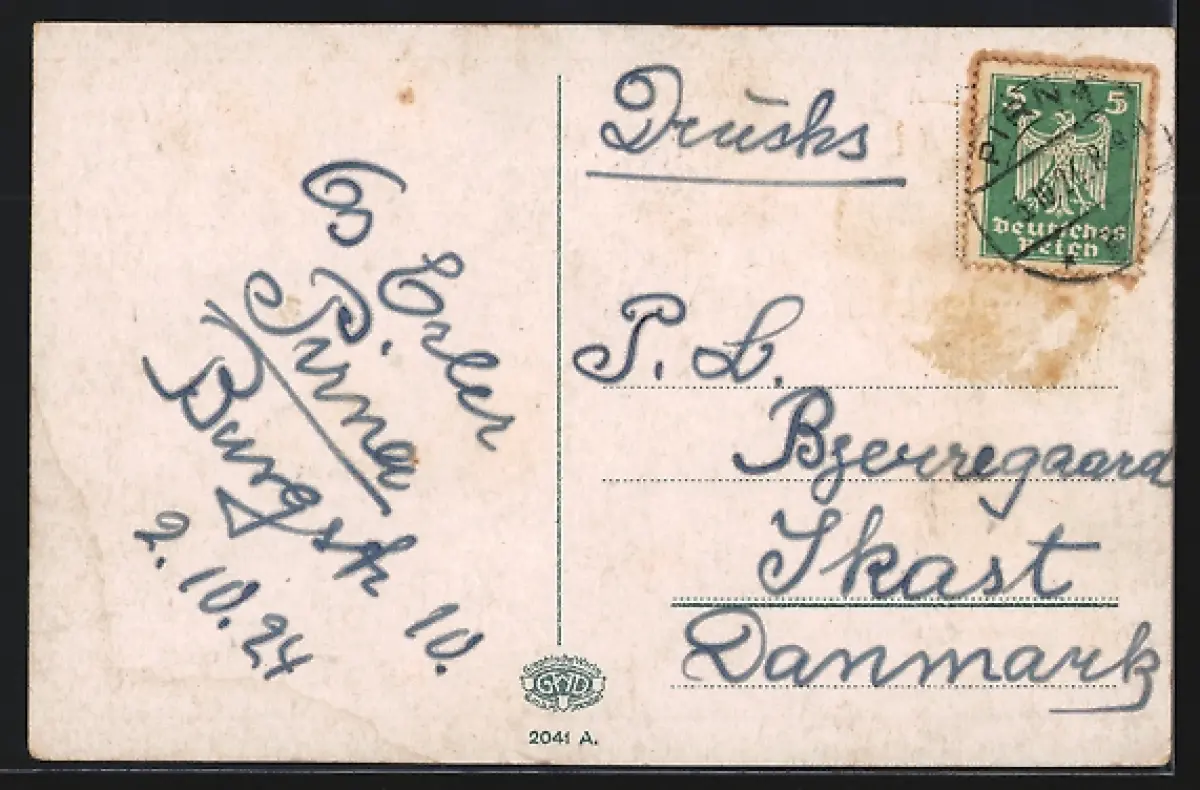 Erler
Pirna
Burgstr 10.
2.10.24
Drucks
5 5
Deutsches
Reich
PIRNA
P. L.
Bzerregaard
Ikast
Danmark
2041 A.